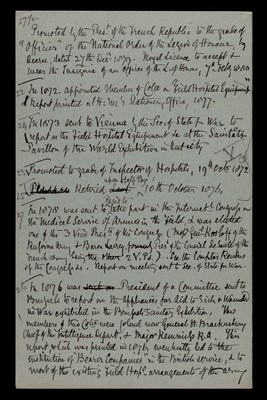 27/2
Promoted by the Presᵗ of the French Republic to the grade of
"Officier" of the National Order of the Legion of Honour, by
decree, dated 27th Decʳ 1879. Royal Licence to accept &
wear the Insignia of an officer of the L. of Honr, 7th Feby 1880
In 1872. appointed Member of Comee on Field Hospital Equipment
Report printed at H. M's Stationery Office, 1877.
In 1873 sent to Vienna by the Secy of State for War to
report on the Field Hospital Equipment &c at the Sanitäts
Pavillon of the World Exhibition in that city
Promoted to grade of Inspector of Hospitals, 19th Octr 1872
Retired on Half Pay 10th October 1876,
In 1878 was sent to Paris to take part in the Internatl Congress on
the Medical Service of Armies in the field, & was elected
one of the 3 Vice Presᵗˢ of the Congress
& Baron Larrey, formerly of the Conseil de Santé of the
French army being the other 2 V. Ps.). See the Comptes Rendus
of the Congress &c. Report on meeting sent to Sec. of State for War.
In 1876 was President of a Committee sent to
Brussels to report on the Appliances for Aid to Sick & Wounded
in War exhibited in the Brussels Sanitary Exhibition, The
members of this Comee were Colonel now General H. Brackenbury
Chief of the Intelligence Departt, & Major R.A. This
report which was printed in 1876, eventually led to the
institution of Bearer Companies in the British service, & to
most of the existing Field Hospl arrangements of the army